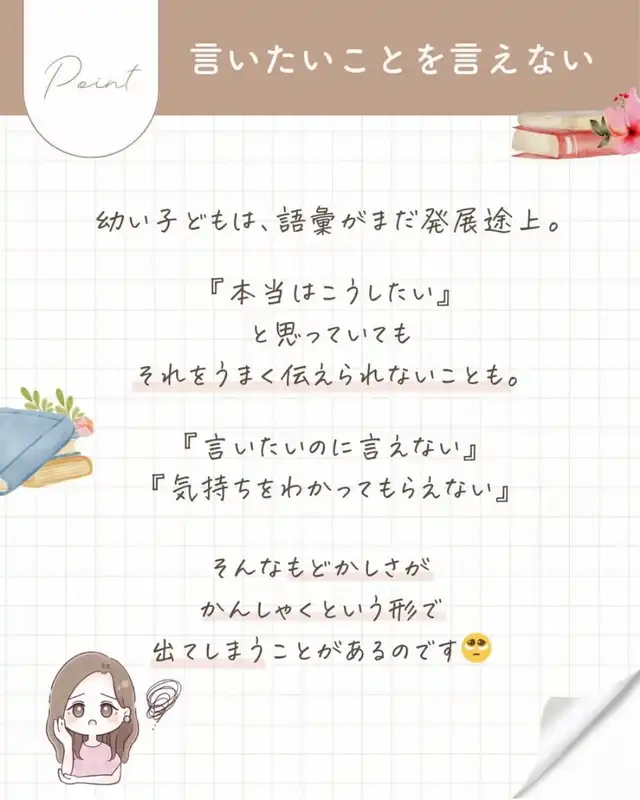 Point
言いたいことを言えない
幼い子どもは、語彙がまだ発展途上。
『本当はこうしたい』
と思っていても
それをうまく伝えられないことも。
『言いたいのに言えない』
『気持ちをわかってもらえない』
そんなもどかしさが
かんしゃくという形で
出てしまうことがあるのです🥺